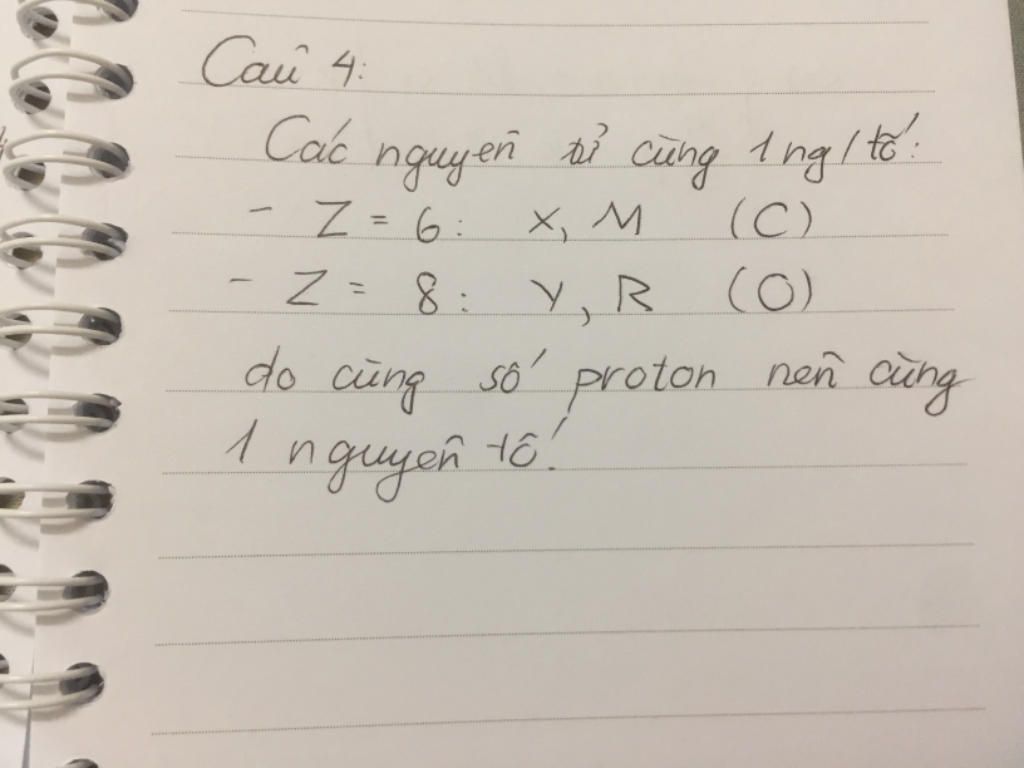 Câu 4:
Các nguyên tử cùng 1 ng/tố:
- Z = 6: X, M (C)
- Z = 8: Y, R (O)
do cùng số proton nên cùng
1 nguyên tố.